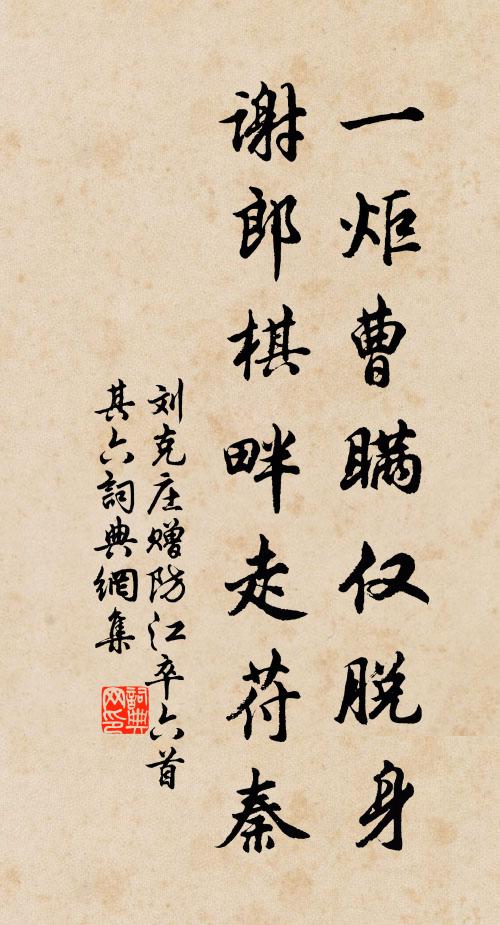 一炬曹瞒仅脱身
谢郎棋畔走苻秦
刘克庄赠防江卒六首
其六詞典網集
詞典網印